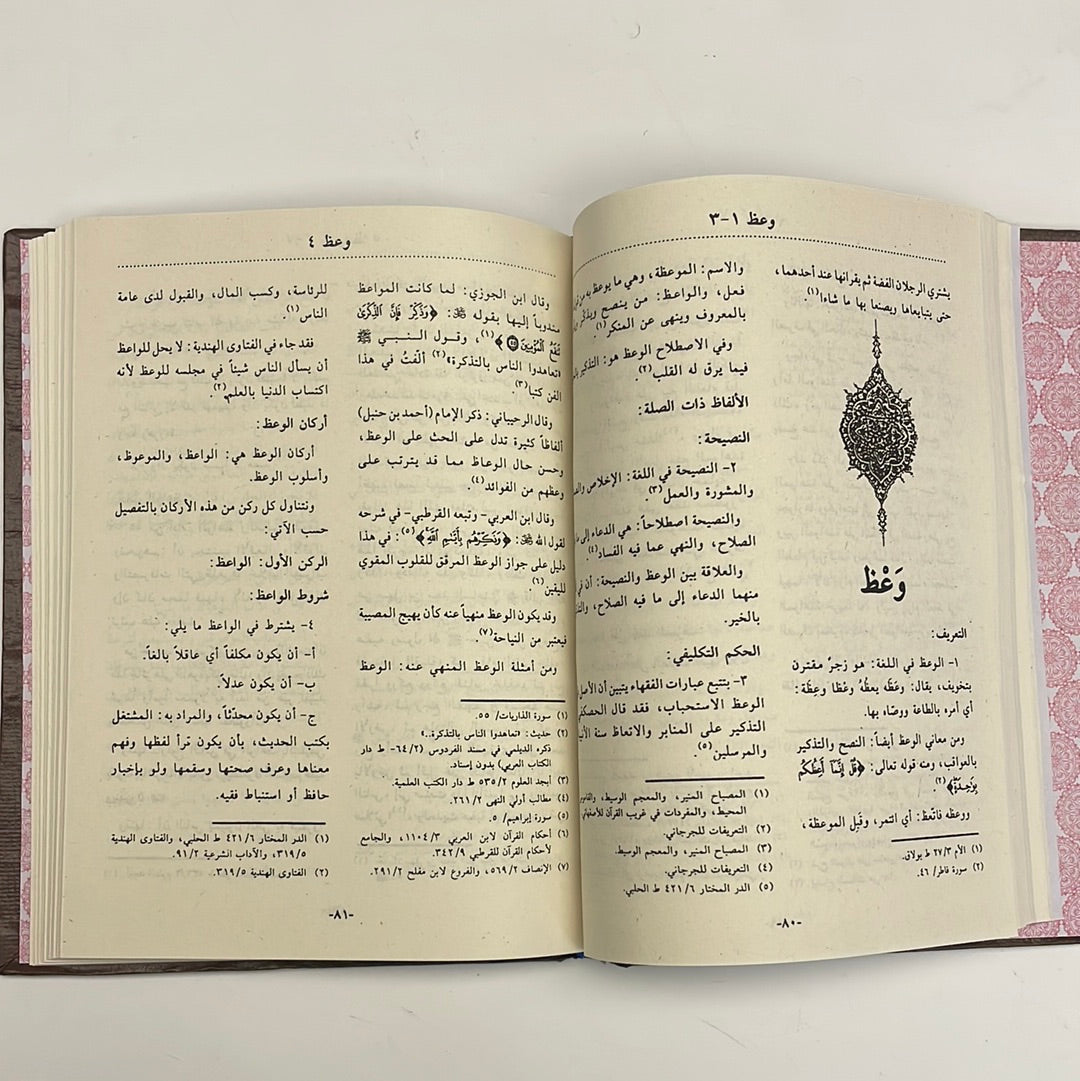 وعظ ١-٣
يشتري الرجلان الفضة ثم يقرانها عند أحدهما،
حتى يتبايعاها ويصنعا بها ما شاءا(١).
وَعْظ
التعريف:
١- الوعظ في اللغة: هو زجرٌ مقترن
بتخويف، يقال: وعَظَه يعظُهُ وعْظا وعِظَة:
أي أمره بالطاعة ووصّاه بها.
ومن معاني الوعظ أيضاً: النصح والتذكير
بالعواقب، ومنه قوله تعالى: ﴿قُلْ إِنَّمَآ أَعِظُكُم
بِوَٰحِدَةٍ﴾(٢).
ووعظه فاتّعظ: أي ائتمر، وقَبِل الموعظة،
(١) الأم ٢٧/٣ ط بولاق.
(٢) سورة فاطر/ ٤٦.
والاسم: الموعظة، وهي ما يوعظ به من
فعل، والواعظ: من ينصح ويذكّر
بالمعروف وينهى عن المنكر(١).
وفي الاصطلاح الوعظ هو: التذكير
فيما يرق له القلب(٢).
الألفاظ ذات الصلة:
النصيحة:
٢- النصيحة في اللغة: الإخلاص
والمشورة والعمل(٣).
والنصيحة اصطلاحاً: هي الدعاء إلى
الصلاح، والنهي عما فيه الفساد(٤).
والعلاقة بين الوعظ والنصيحة: أن في
منهما الدعاء إلى ما فيه الصلاح،
بالخير.
الحكم التكليفي:
٣- بتتبع عبارات الفقهاء يتبين أن الأصل
الوعظ الاستحباب، فقد قال الحصكفي
التذكير على المنابر والاتعاظ سنة
والمرسلين(٥).
(١) المصباح المنير، والمعجم الوسيط،
المحيط، والمفردات في غريب القرآن للأصفهاني
(٢) التعريفات للجرجاني.
(٣) المصباح المنير، والمعجم الوسيط.
(٤) التعريفات للجرجاني.
(٥) الدر المختار ٤٢١/٦ ط الحلبي.
-٨٠-
وعظ ٤
وقال ابن الجوزي: لما كانت المواعظ
مندوباً إليها بقوله ﷻ: ﴿وَذَكِّرْ فَإِنَّ ٱلذِّكْرَىٰ
تَنفَعُ ٱلْمُؤْمِنِينَ ٥٥﴾(١)، وقول النبي ﷺ
«تعاهدوا الناس بالتذكرة»(٢) ألّفتُ في هذا
الفن كتبا(٣).
وقال الرحيباني: ذكر الإمام (أحمد بن حنبل)
ألفاظاً كثيرة تدل على الحث على الوعظ،
وحسن حال الوعاظ مما قد يترتب على
وعظهم من الفوائد(٤).
وقال ابن العربي- وتبعه القرطبي- في شرحه
لقول الله ﷻ: ﴿وَذَكِّرْهُم بِأَيَّىٰمِ ٱللَّهِ﴾(٥): في هذا
دليل على جواز الوعظ المرقق للقلوب المقوي
لليقين(٦)
وقد يكون الوعظ منهياً عنه كأن يهيج المصيبة
فيعتبر من النياحة(٧).
ومن أمثلة الوعظ المنهي عنه: الوعظ
(١) سورة الذاريات/ ٥٥.
(٢) حديث: «تعاهدوا الناس بالتذكرة..»
ذكره الديلمي في مسند الفردوس (٦٤/٢- ط دار
الكتاب العربي) بدون إسناد.
(٣) أبجد العلوم ٥٣٥/٢ ط دار الكتب العلمية.
(٤) مطالب أولي النهى ٢٦١/٢.
(٥) سورة إبراهيم/ ٥.
(٦) أحكام القرآن لابن العربي ١١٠٤/٣، والجامع
لأحكام القرآن للقرطبي ٣٤٢/٩.
(٧) الإنصاف ٥٦٩/٢، والفروع لابن مفلح ٢٩١/٢.
للرئاسة، وكسب المال، والقبول لدى عامة
الناس(١).
فقد جاء في الفتاوى الهندية: لا يحل للواعظ
أن يسأل الناس شيئاً في مجلسه للوعظ لأنه
اكتساب الدنيا بالعلم(٢).
أركان الوعظ:
أركان الوعظ هي: الواعظ، والموعوظ،
وأسلوب الوعظ.
ونتناول كل ركن من هذه الأركان بالتفصيل
حسب الآتي:
الركن الأول: الواعظ:
شروط الواعظ:
٤- يشترط في الواعظ ما يلي:
أ- أن يكون مكلفاً أي عاقلاً بالغاً.
ب- أن يكون عدلاً.
ج- أن يكون محدّثاً، والمراد به: المشتغل
بكتب الحديث، بأن يكون قرأ لفظها وفهم
معناها وعرف صحتها وسقمها ولو بإخبار
حافظ أو استنباط فقيه.
(١) الدر المختار ٤٢١/٦ ط الحلبي، والفتاوى الهندية
٣١٩/٥، والآداب الشرعية ٩١/٢.
(٢) الفتاوى الهندية ٣١٩/٥.
-٨١-